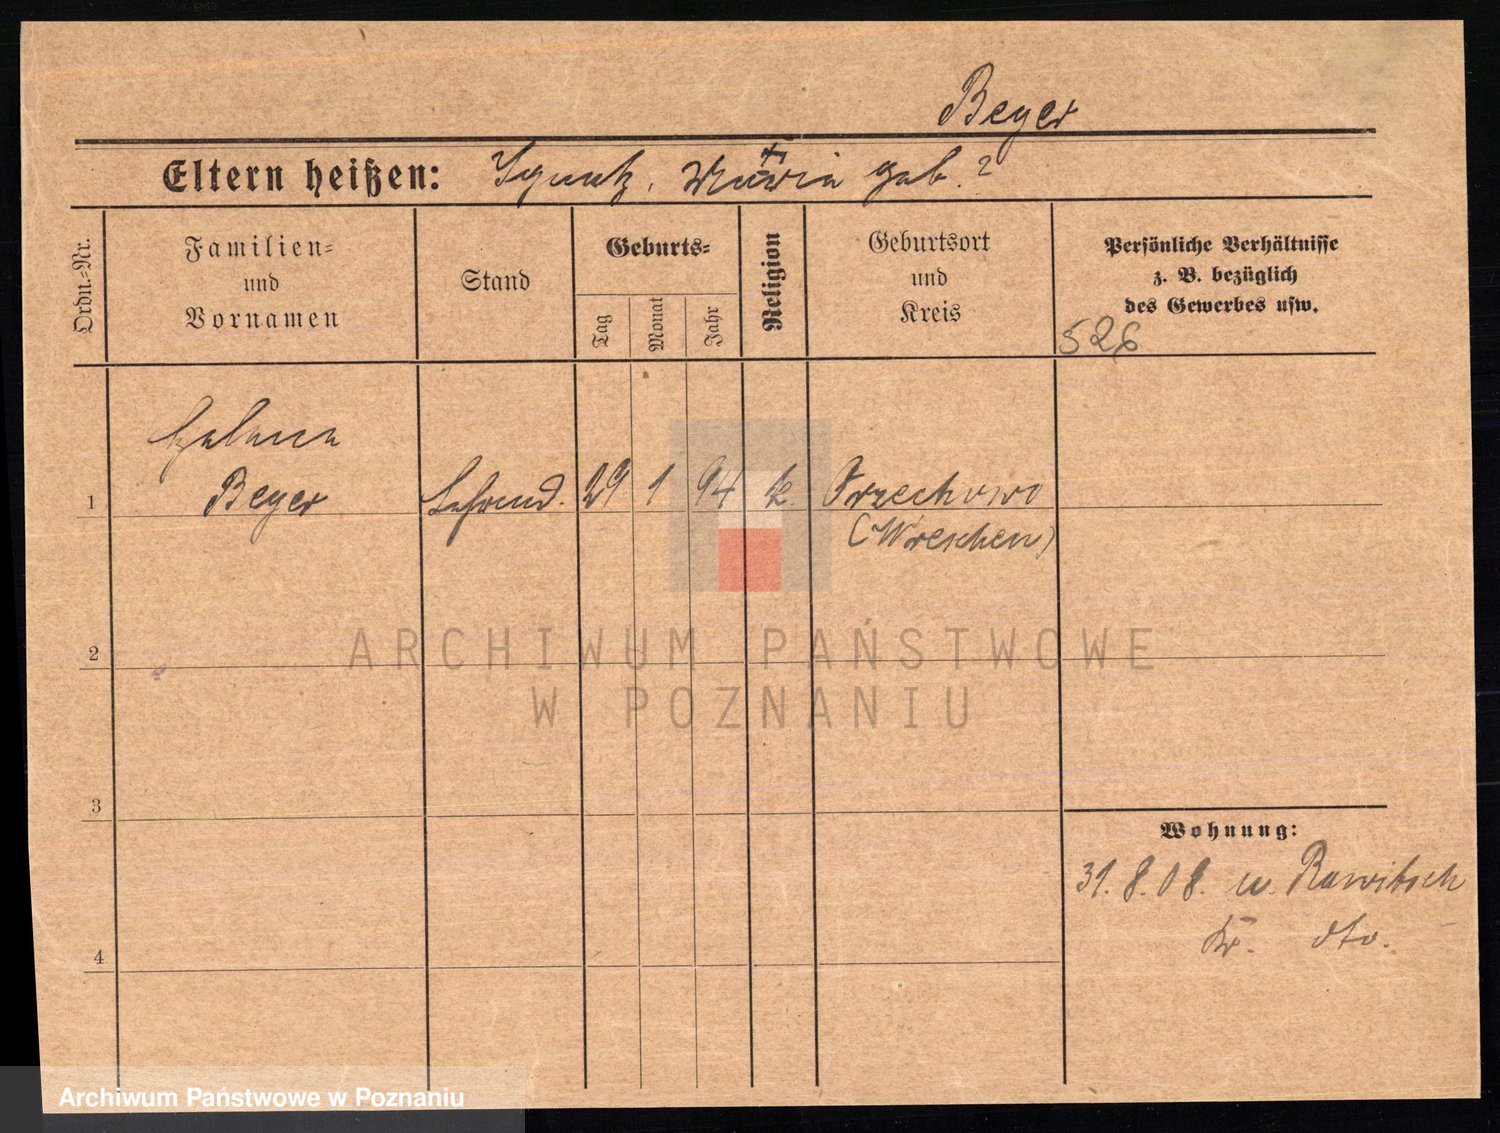 Beyer
Eltern heißen: Ignatz, Maria geb. ?
Ordn.-Nr.
Familien-
und
Vornamen
Stand
Geburts-
Tag
Monat
Jahr
Religion
Geburtsort
und
Kreis
Persönliche Verhältnisse
z. B. bezüglich
des Gewerbes usw.
526
Helena
1 Beyer 29 1 94 k.
(Wreschen)
2
3
4
Wohnung:
31.8.08. n. Rawitsch
Kr. dto.
ARCHIWUM PAŃSTWOWE
W POZNANIU
Archiwum Państwowe w Poznaniu